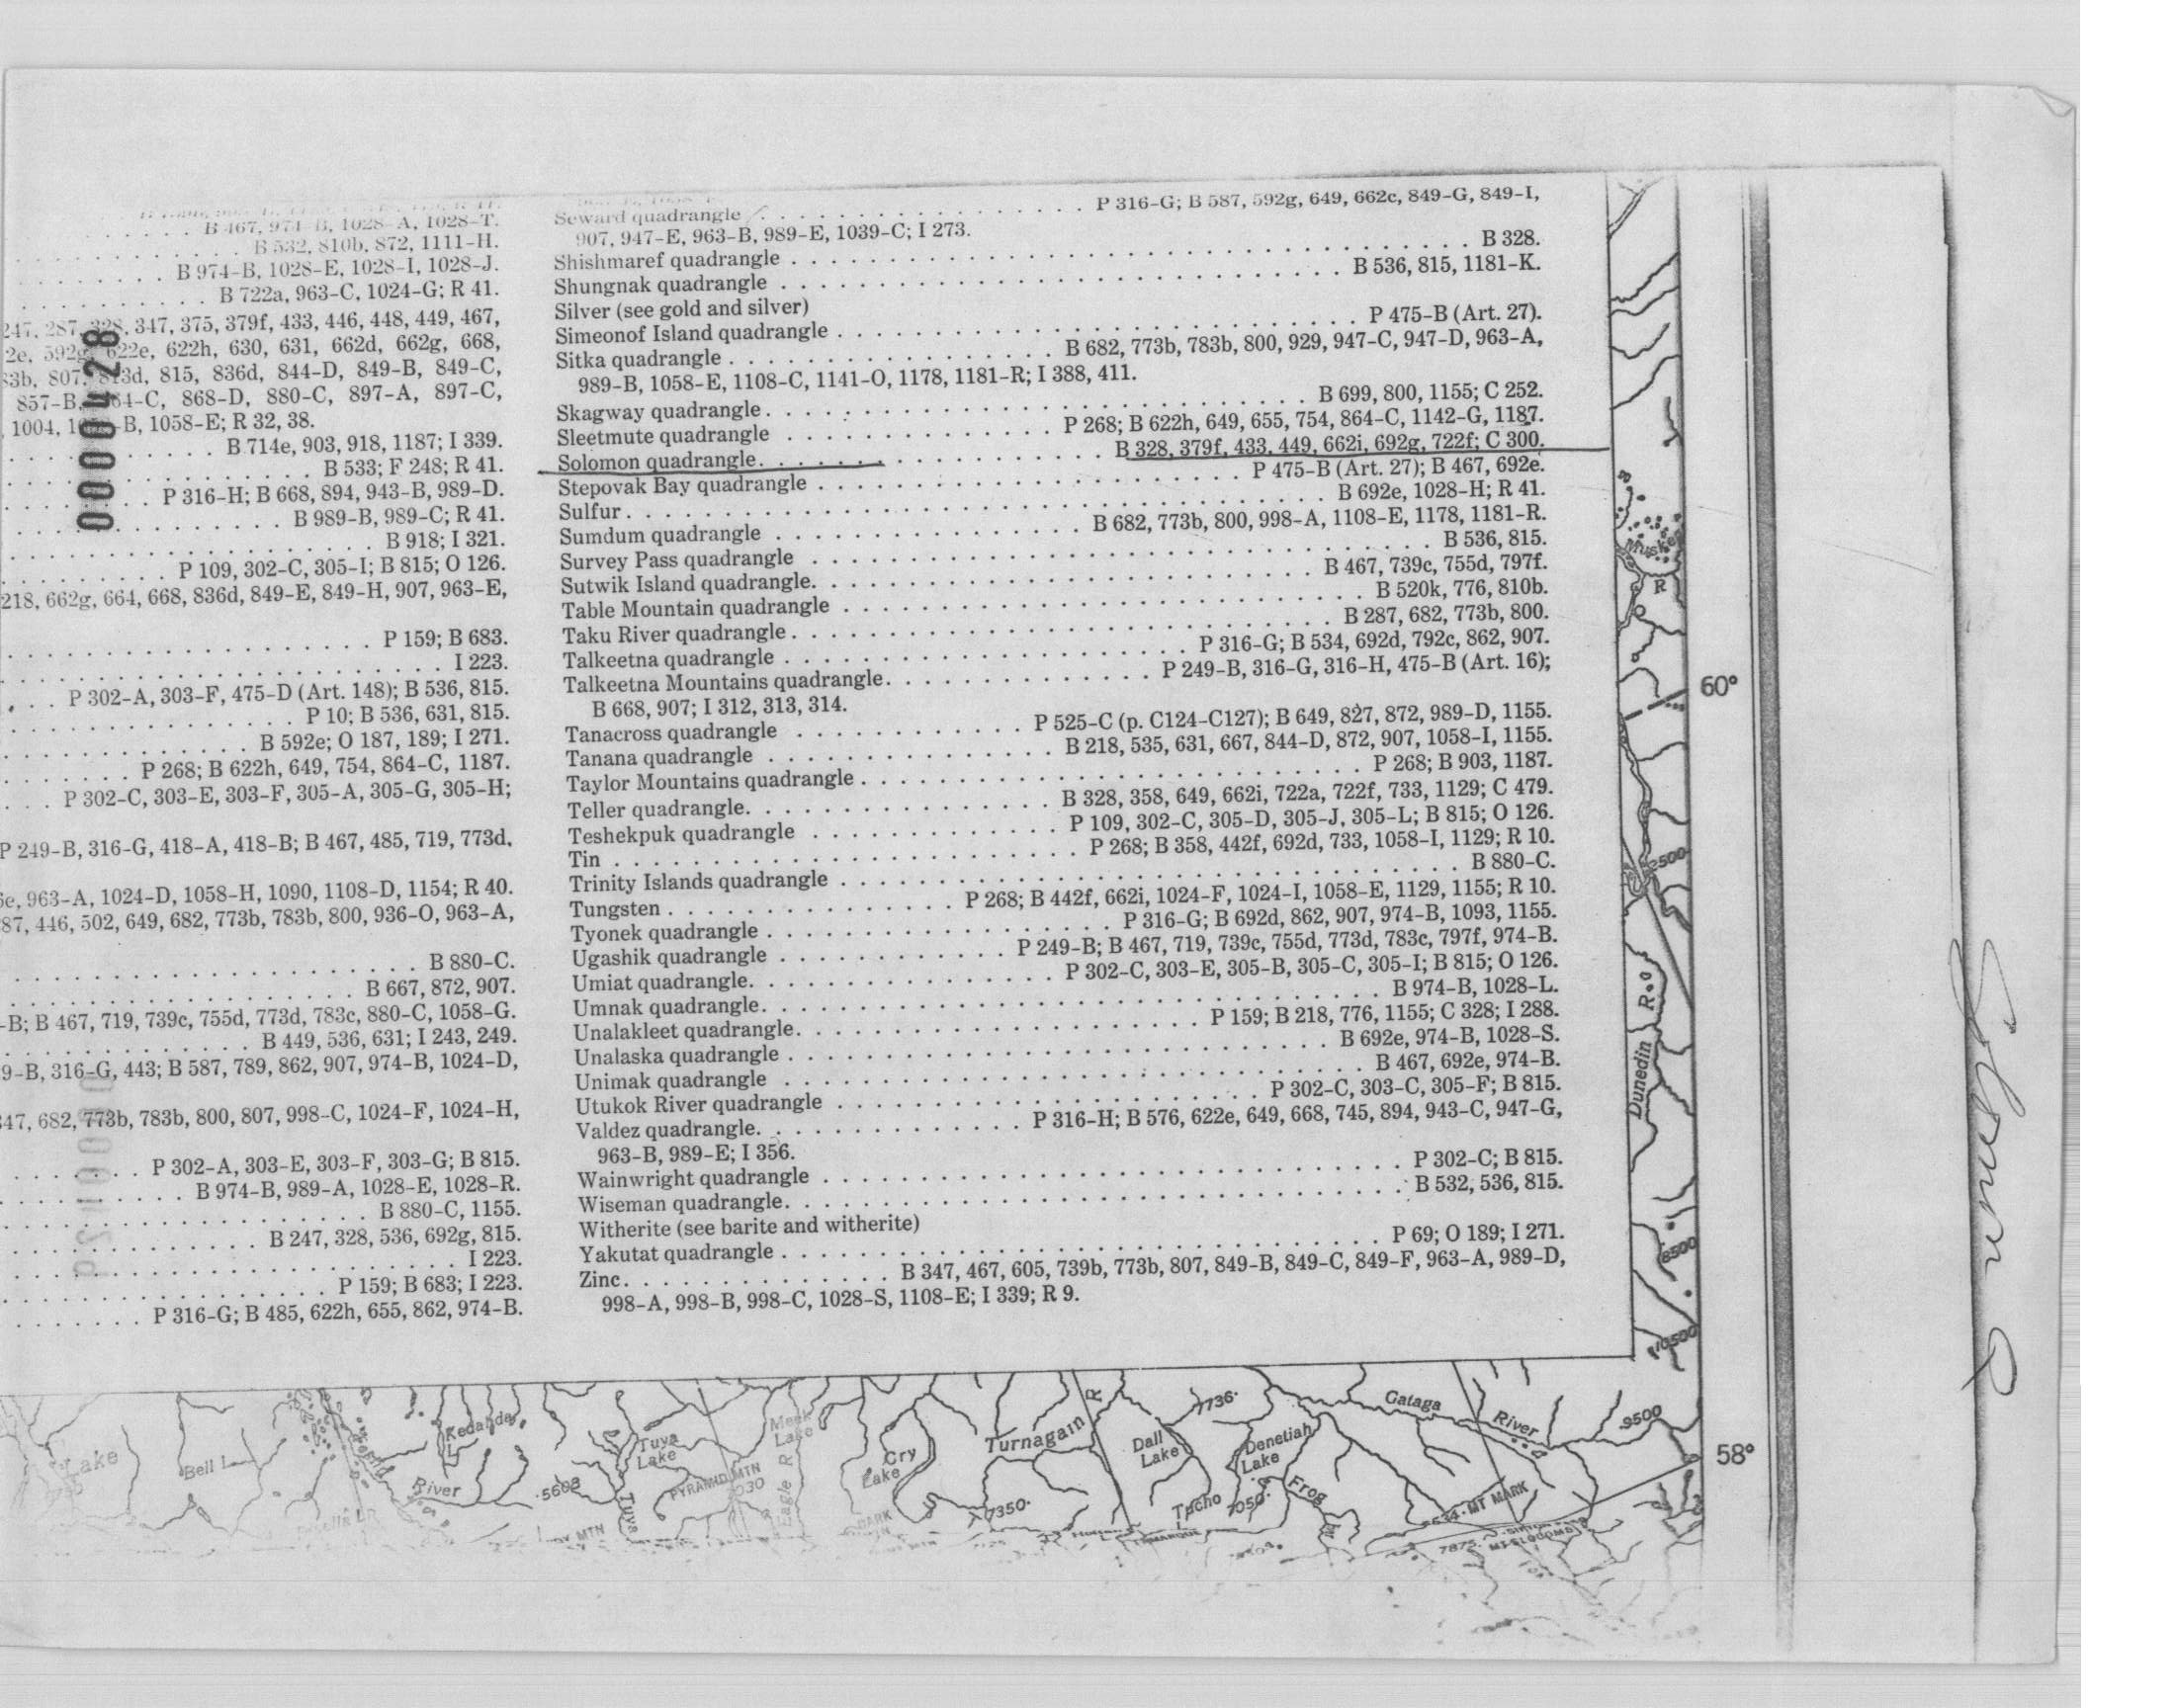 B 467, 974-B, 1028-A, 1028-T.
B 532, 810b, 872, 1111-H.
B 974-B, 1028-E, 1028-I, 1028-J.
B 722a, 963-C, 1024-G; R 41.
247, 287, 328, 347, 375, 379f, 433, 446, 448, 449, 467,
2e, 592g, 622e, 622h, 630, 631, 662d, 662g, 668,
3b, 807, 813d, 815, 836d, 844-D, 849-B, 849-C,
857-B, 864-C, 868-D, 880-C, 897-A, 897-C,
, 1004, B, 1058-E; R 32, 38.
B 714e, 903, 918, 1187; I 339.
B 533; F 248; R 41.
P 316-H; B 668, 894, 943-B, 989-D.
B 989-B, 989-C; R 41.
B 918; I 321.
P 109, 302-C, 305-I; B 815; O 126.
218, 662g, 664, 668, 836d, 849-E, 849-H, 907, 963-E,
P 159; B 683.
I 223.
P 302-A, 303-F, 475-D (Art. 148); B 536, 815.
P 10; B 536, 631, 815.
B 592e; O 187, 189; I 271.
P 268; B 622h, 649, 754, 864-C, 1187.
P 302-C, 303-E, 303-F, 305-A, 305-G, 305-H;
P 249-B, 316-G, 418-A, 418-B; B 467, 485, 719, 773d,
6e, 963-A, 1024-D, 1058-H, 1090, 1108-D, 1154; R 40.
87, 446, 502, 649, 682, 773b, 783b, 800, 936-O, 963-A,
B 880-C.
B 667, 872, 907.
-B; B 467, 719, 739c, 755d, 773d, 783c, 880-C, 1058-G.
B 449, 536, 631; I 243, 249.
9-B, 316-G, 443; B 587, 789, 862, 907, 974-B, 1024-D,
347, 682, 773b, 783b, 800, 807, 998-C, 1024-F, 1024-H,
P 302-A, 303-E, 303-F, 303-G; B 815.
B 974-B, 989-A, 1028-E, 1028-R.
B 880-C, 1155.
B 247, 328, 536, 692g, 815.
I 223.
P 159; B 683; I 223.
P 316-G; B 485, 622h, 655, 862, 974-B.
0000428
Seward quadrangle . . . . . P 316-G; B 587, 592g, 649, 662c, 849-G, 849-I,
907, 947-E, 963-B, 989-E, 1039-C; I 273.
Shishmaref quadrangle . . . . . B 328.
Shungnak quadrangle . . . . . B 536, 815, 1181-K.
Silver (see gold and silver)
Simeonof Island quadrangle . . . . . P 475-B (Art. 27).
Sitka quadrangle . . . . . B 682, 773b, 783b, 800, 929, 947-C, 947-D, 963-A,
989-B, 1058-E, 1108-C, 1141-O, 1178, 1181-R; I 388, 411.
Skagway quadrangle . . . . . B 699, 800, 1155; C 252.
Sleetmute quadrangle . . . . . P 268; B 622h, 649, 655, 754, 864-C, 1142-G, 1187.
Solomon quadrangle . . . . . B 328, 379f, 433, 449, 662i, 692g, 722f; C 300.
Stepovak Bay quadrangle . . . . . P 475-B (Art. 27); B 467, 692e.
Sulfur . . . . . B 692e, 1028-H; R 41.
Sumdum quadrangle . . . . . B 682, 773b, 800, 998-A, 1108-E, 1178, 1181-R.
Survey Pass quadrangle . . . . . B 536, 815.
Sutwik Island quadrangle . . . . . B 467, 739c, 755d, 797f.
Table Mountain quadrangle . . . . . B 520k, 776, 810b.
Taku River quadrangle . . . . . B 287, 682, 773b, 800.
Talkeetna quadrangle . . . . . P 316-G; B 534, 692d, 792c, 862, 907.
Talkeetna Mountains quadrangle . . . . . P 249-B, 316-G, 316-H, 475-B (Art. 16);
B 668, 907; I 312, 313, 314.
Tanacross quadrangle . . . . . P 525-C (p. C124-C127); B 649, 827, 872, 989-D, 1155.
Tanana quadrangle . . . . . B 218, 535, 631, 667, 844-D, 872, 907, 1058-I, 1155.
Taylor Mountains quadrangle . . . . . P 268; B 903, 1187.
Teller quadrangle . . . . . B 328, 358, 649, 662i, 722a, 722f, 733, 1129; C 479.
Teshekpuk quadrangle . . . . . P 109, 302-C, 305-D, 305-J, 305-L; B 815; O 126.
Tin . . . . . P 268; B 358, 442f, 692d, 733, 1058-I, 1129; R 10.
Trinity Islands quadrangle . . . . . B 880-C.
Tungsten . . . . . P 268; B 442f, 662i, 1024-F, 1024-I, 1058-E, 1129, 1155; R 10.
Tyonek quadrangle . . . . . P 316-G; B 692d, 862, 907, 974-B, 1093, 1155.
Ugashik quadrangle . . . . . P 249-B; B 467, 719, 739c, 755d, 773d, 783c, 797f, 974-B.
Umiat quadrangle . . . . . P 302-C, 303-E, 305-B, 305-C, 305-I; B 815; O 126.
Umnak quadrangle . . . . . B 974-B, 1028-L.
Unalakleet quadrangle . . . . . P 159; B 218, 776, 1155; C 328; I 288.
Unalaska quadrangle . . . . . B 692e, 974-B, 1028-S.
Unimak quadrangle . . . . . B 467, 692e, 974-B.
Utukok River quadrangle . . . . . P 302-C, 303-C, 305-F; B 815.
Valdez quadrangle . . . . . P 316-H; B 576, 622e, 649, 668, 745, 894, 943-C, 947-G,
963-B, 989-E; I 356.
Wainwright quadrangle . . . . . P 302-C; B 815.
Wiseman quadrangle . . . . . B 532, 536, 815.
Witherite (see barite and witherite)
Yakutat quadrangle . . . . . P 69; O 189; I 271.
Zinc . . . . . B 347, 467, 605, 739b, 773b, 807, 849-B, 849-C, 849-F, 963-A, 989-D,
998-A, 998-B, 998-C, 1028-S, 1108-E; I 339; R 9.
R
60°
2500
R
Dunedin
8500
10500
58°
Lake
Bell L
Kedahda
L
River
5608
Tuya
Lake
Tuya
PYRAMID MTN
Meek
Lake
Eagle R
Cry
Lake
Turnagain
R
7350
Dall
Lake
7736
Denetiah
Lake
Tucho
7050
Frog
Gataga
River
9500
MT MARK
7875